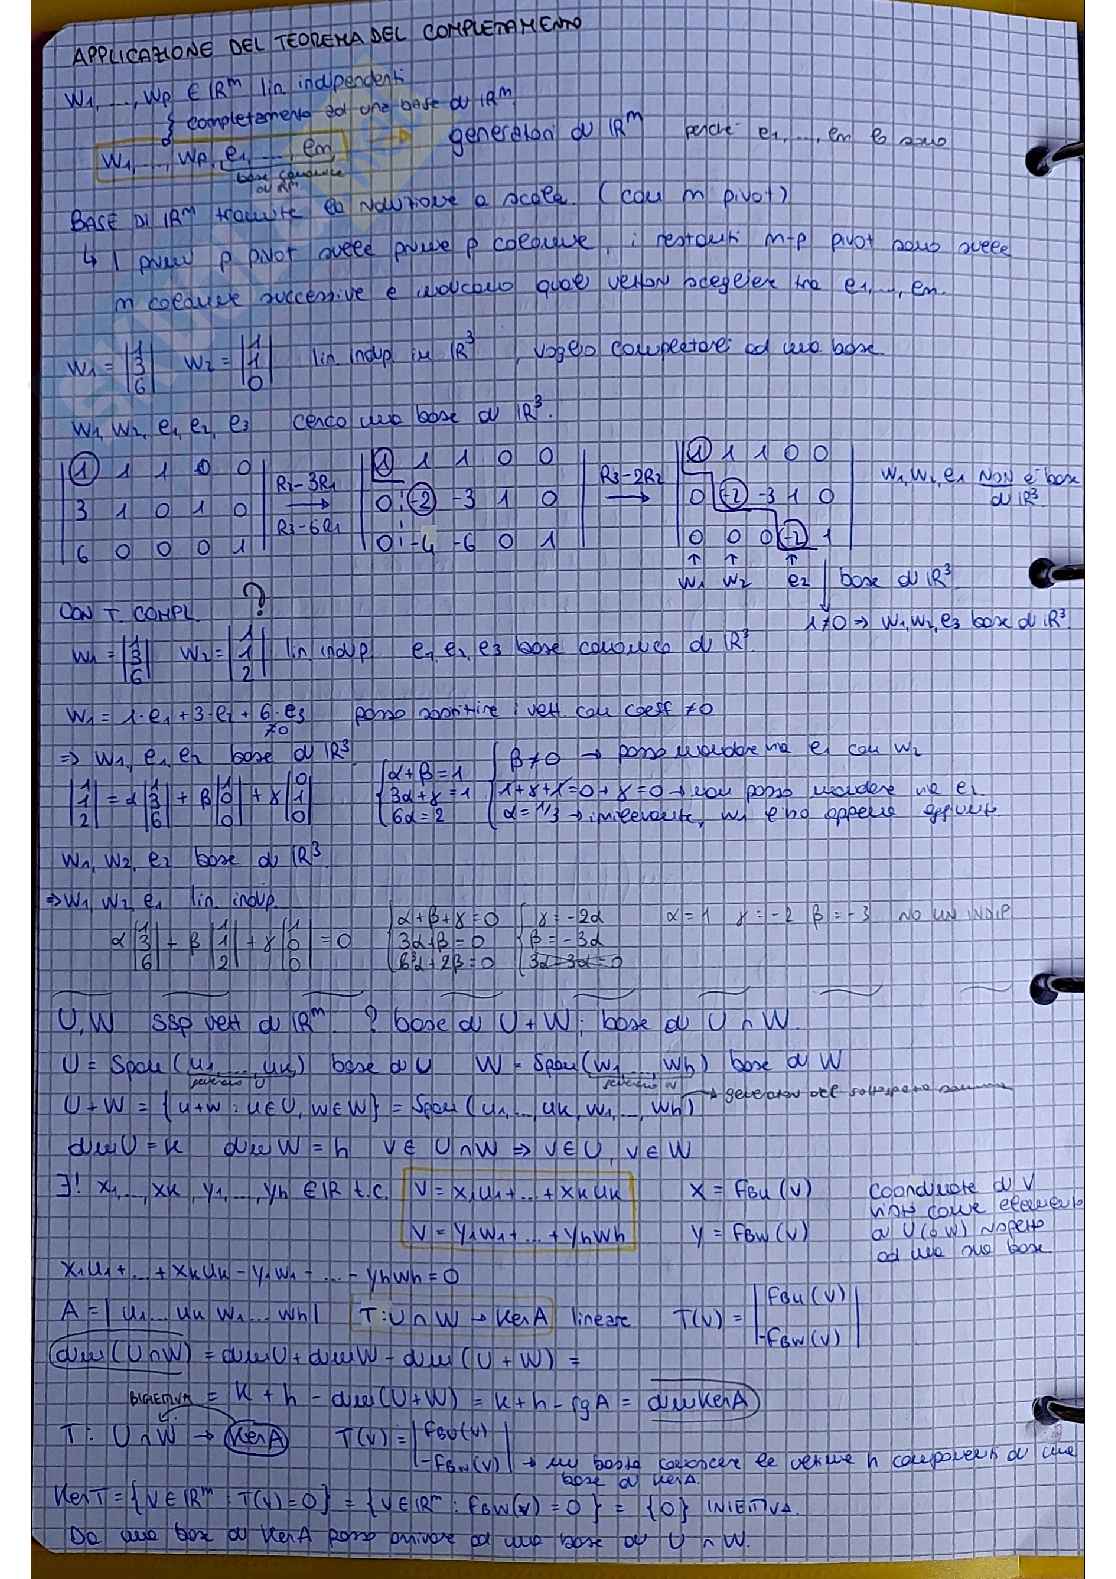 APPLICAZIONE DEL TEOREMA DEL COMPLETAMENTO
W1, ..., Wp ∈ ℝᵐ lin indipendenti
completamento ad una base di ℝᵐ
W1, ..., Wp, e1, ..., em → generatori di ℝᵐ perché e1, ..., em lo sono
base canonica di ℝᵐ
BASE DI ℝᵐ tramite la riduzione a scala. (con m pivot)
↳ I primi p pivot sulle prime p colonne, i restanti m-p pivot sono sulle
m colonne successive e indicano quali vettori scegliere tra e1, ..., em.
W1 = |1 3 6| W2 = |1 1 0| lin indip in ℝ³, voglio completare ad una base
W1, W2, e1, e2, e3 cerco una base di ℝ³.
|1 1 1 0 0| |1 1 1 0 0| |1 1 1 0 0|
|3 1 0 1 0| R2-3R1 → R3-6R1 |0 -2 -3 1 0| R3-2R2 → |0 -2 -3 1 0| W1, W2, e1 NON è base di ℝ³
|6 0 0 0 1| |0 -4 -6 0 1| |0 0 0 -2 1|
↑ ↑ ↑
W1 W2 e2 base di ℝ³
CON T. COMPL. ? 1≠0 ⇒ W1, W2, e3 base di ℝ³
W1 = |1 3 6| W2 = |1 1 2| lin indip e1, e2, e3 base canonica di ℝ³
W1 = 1·e1 + 3·e2 + 6·e3 posso sostituire i vett con coeff ≠0
≠0
⇒ W1, e1, e2 base di ℝ³
|1 1 2| = α|1 3 6| + β|1 0 0| + γ|0 1 0| {α+β=1 {β≠0 → posso scambiare e1 con W2
{3α+γ=1
{6α=2 {α=1/3 → irrilevante,
W1, W2, e2 base di ℝ³
⇒ W1, W2, e1 lin indip
α|1 3 6| + β|1 1 2| + γ|1 0 0| = 0 {α+β+γ=0 {γ=-2α α=1 γ=-2 β=-3 NO LIN INDIP
{3α+β=0 {β=-3α
{6α+2β=0 {3α-3α=0
U, W ssp vett di ℝᵐ ? base di U + W; base di U ∩ W.
U = Span(u1, ..., uk) base di U W = Span(w1, ..., wh) base di W
generano U
U+W = {u+w : u∈U, w∈W} = Span(u1, ..., uk, w1, ..., wh) → generatori del sottospazio somma
dimU = k dimW = h v ∈ U∩W ⇒ v∈U, v∈W
∃! x1, ..., xk, y1, ..., yh ∈ ℝ t.c. v = x1u1+...+xkuk x = FBU(v) coordinate di v
visto come elemento
v = y1w1+...+yhwh y = FBW(v) di U (o W) rispetto
ad una sua base
x1u1+...+xkuk-y1w1-...-yhwh=0
A = |u1...uk w1...wh| T: U∩W → KerA lineare T(v) = |FBU(v) -FBW(v)|
dim(U∩W) = dimU + dimW - dim(U+W) =
BIGETTIVA = k + h - dim(U+W) = k + h - rgA = dimKerA
T: U∩W → KerA T(v) = |FBU(v) -FBW(v)| → mi basta conoscere le ultime h componenti di una
base di KerA.
KerT = {v∈ℝᵐ : T(v)=0} = {v∈ℝᵐ : FBW(v)=0} = {0} INIETTIVA.
Da una base di KerA posso arrivare ad una base di U ∩ W.